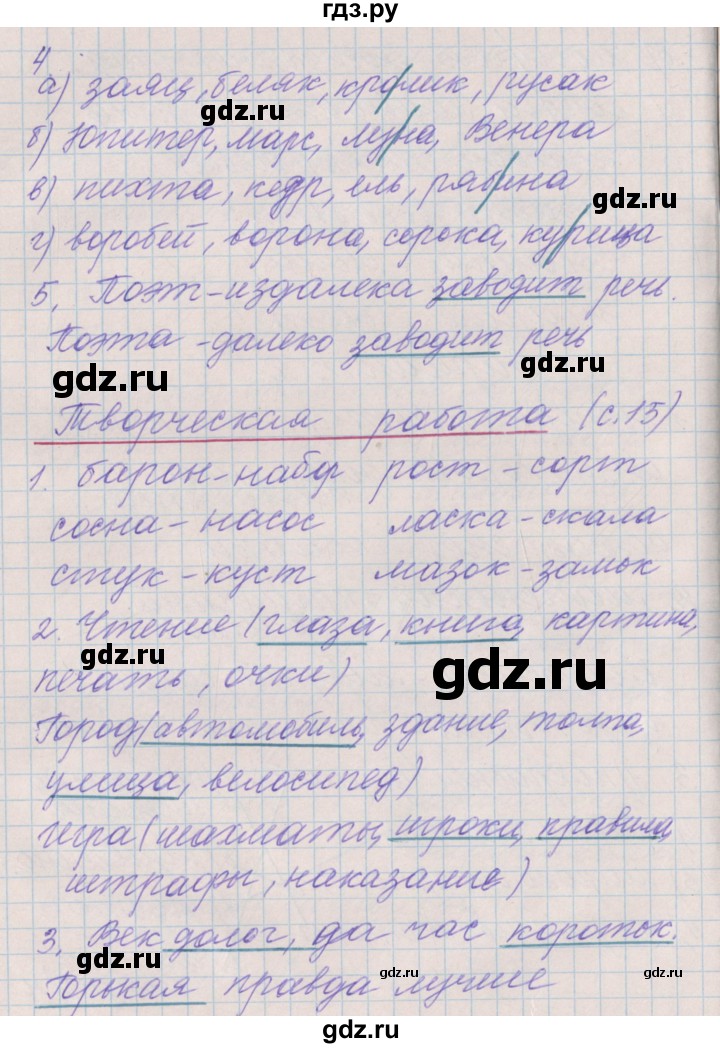 гдз.ру
4
а) заяц, беляк, кролик, русак
gdz.ru
б) Юпитер, марс, луна, Венера
gdz.ru
в) пихта, кедр, ель, рябина
г) воробей, ворона, сорока, курица
5. Поэт-издалека заводит речь.
Поэта -далеко заводит речь
gdz.ru
gdz.ru
Творческая работа (с.15)
1. барон-набор рост-сорт
сосна-насос ласка-скала
стук-куст мазок-замок
2. Чтение (глаза, книга, картина,
gdz.ru
gdz.ru
печать, очки)
Город(автомобиль, здание, толпа,
улица, велосипед)
gdz.ru
игра(шахматы, игроки, правила,
штрафы, наказание)
3. Век долог, да час короток.
gdz.ru
gdz.ru
gdz.ru
Горькая правда лучше
gdz.ru